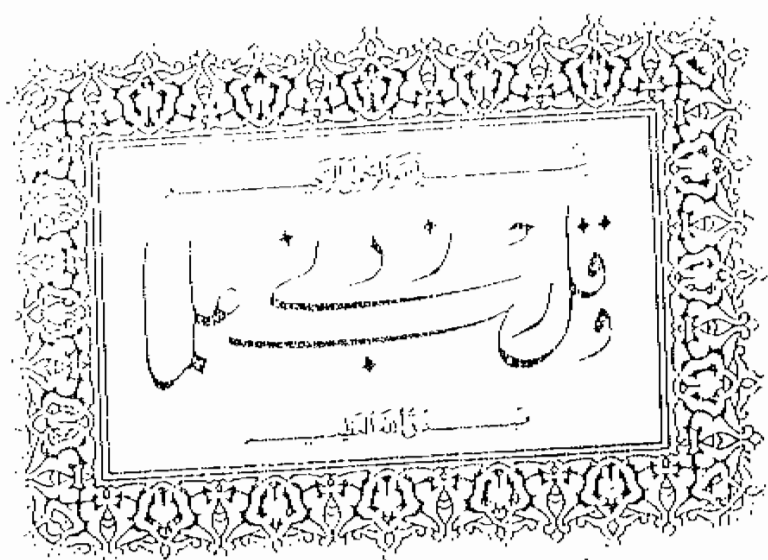 بسم الله الرحمن الرحيم
وقل رب زدني علما
صدق الله العظيم